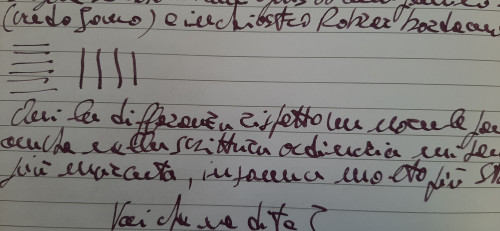 (credo Fermo) e inchiostro Rohrer bordeaux
Qui la differenza rispetto un normale
anche nella scrittura ordinaria mi
più marcata, insomma molto più
Voi che ne dite?